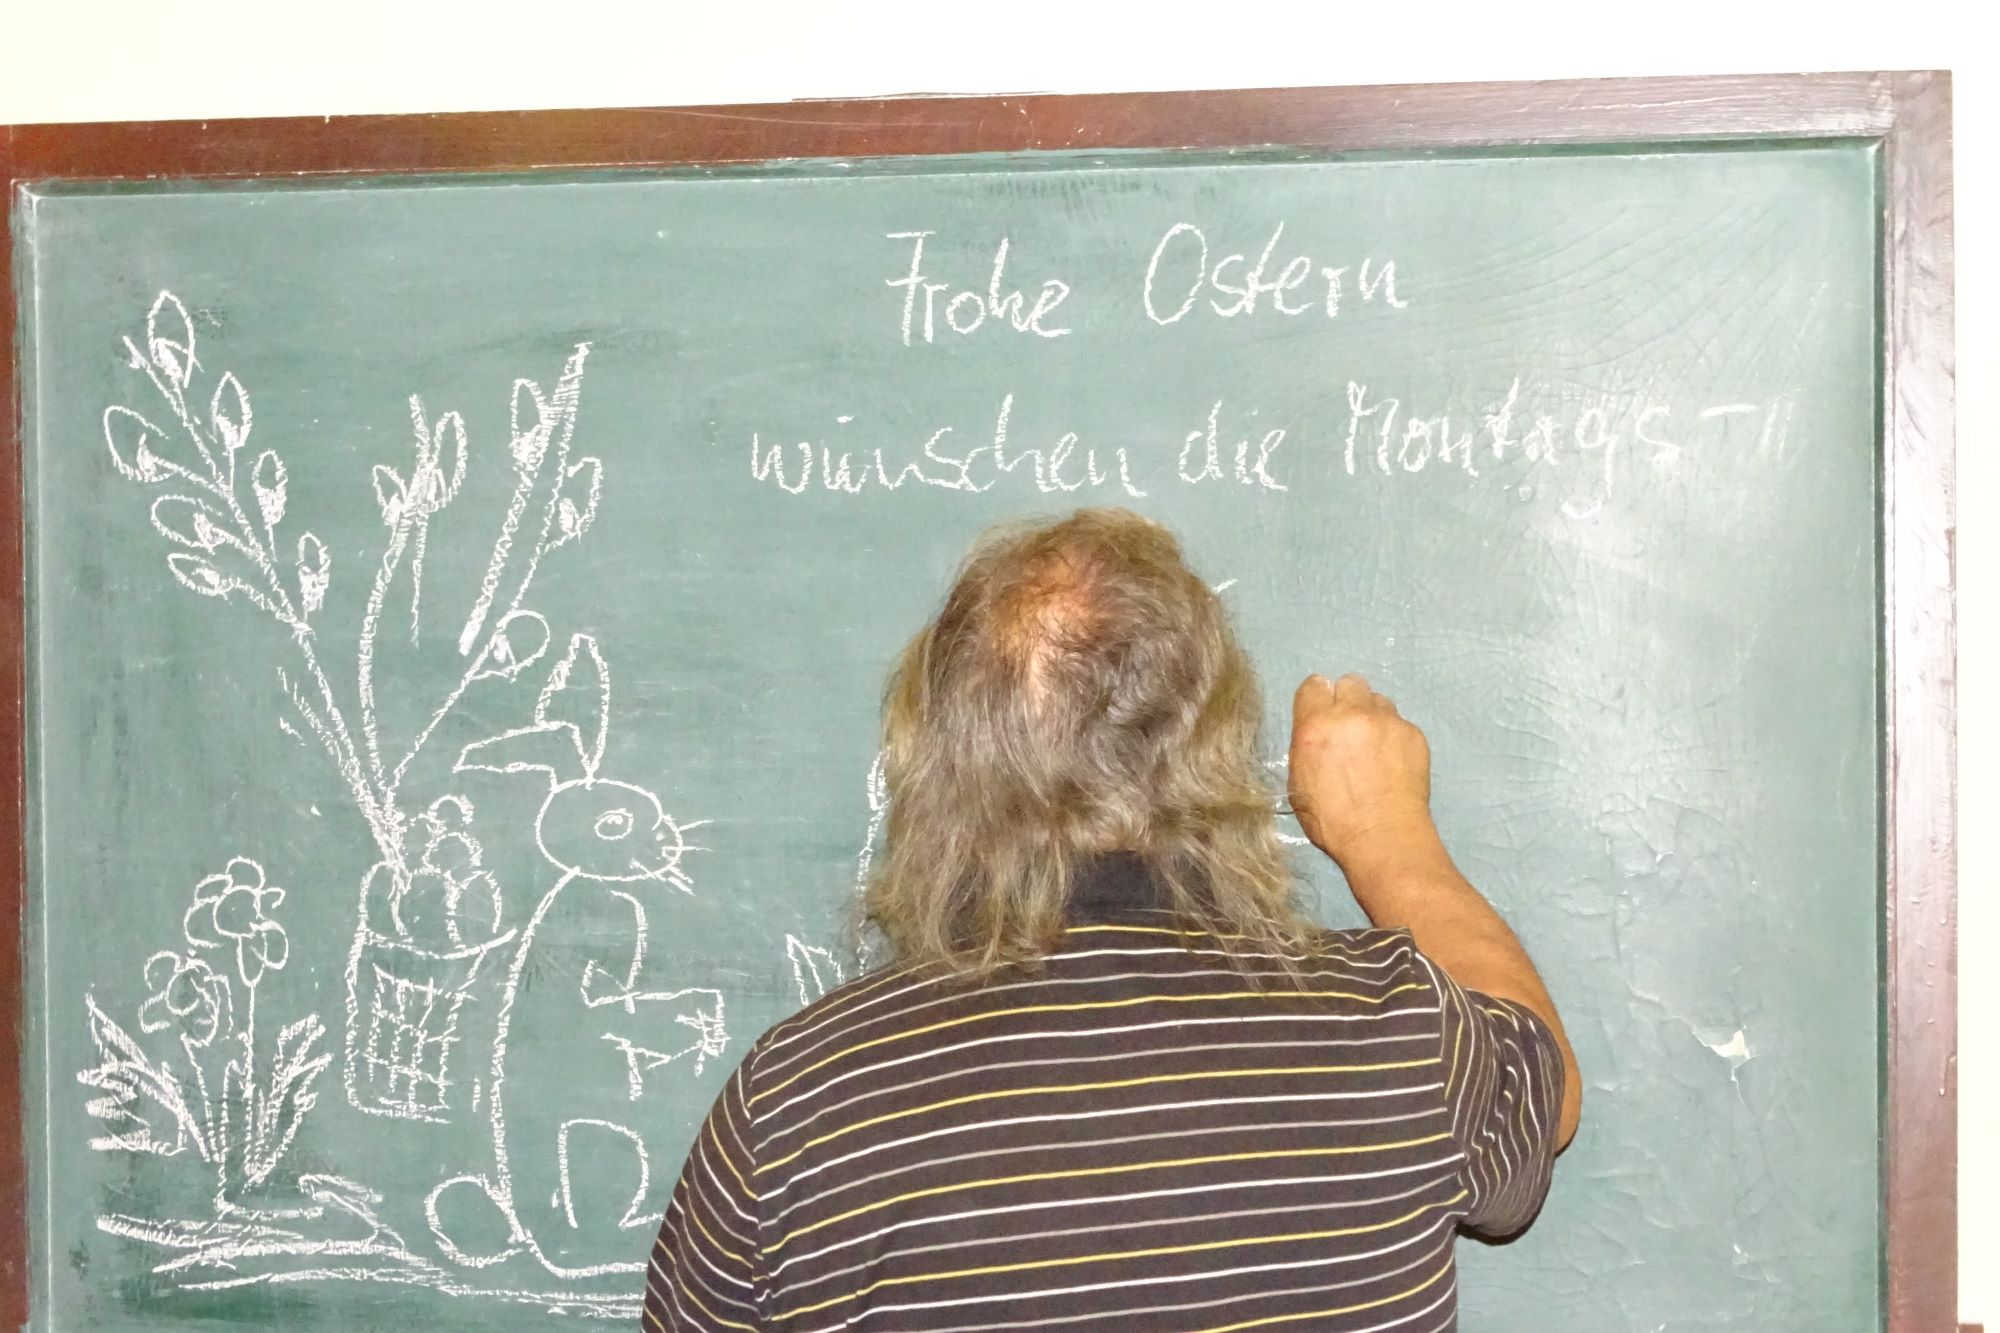 Frohe Ostern
wünschen die Montags-